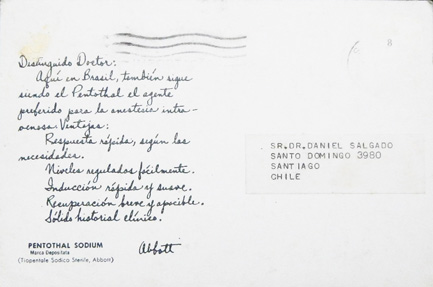 Distinguido Doctor:
Aquí en Brasil, también sigue
siendo el Pentothal el agente
preferido para la anestesia intra-
venosa. Ventajas:
Respuesta rápida, según las
necesidades.
Niveles regulados fácilmente.
Inducción rápida y suave.
Recuperación breve y apacible.
Sólido historial clínico.
Abbott
PENTOTHAL SODIUM
Marca Depositada
(Tiopentale Sodico Sterile, Abbott)
8
SR.DR.DANIEL SALGADO
SANTO DOMINGO 3980
SANTIAGO
CHILE